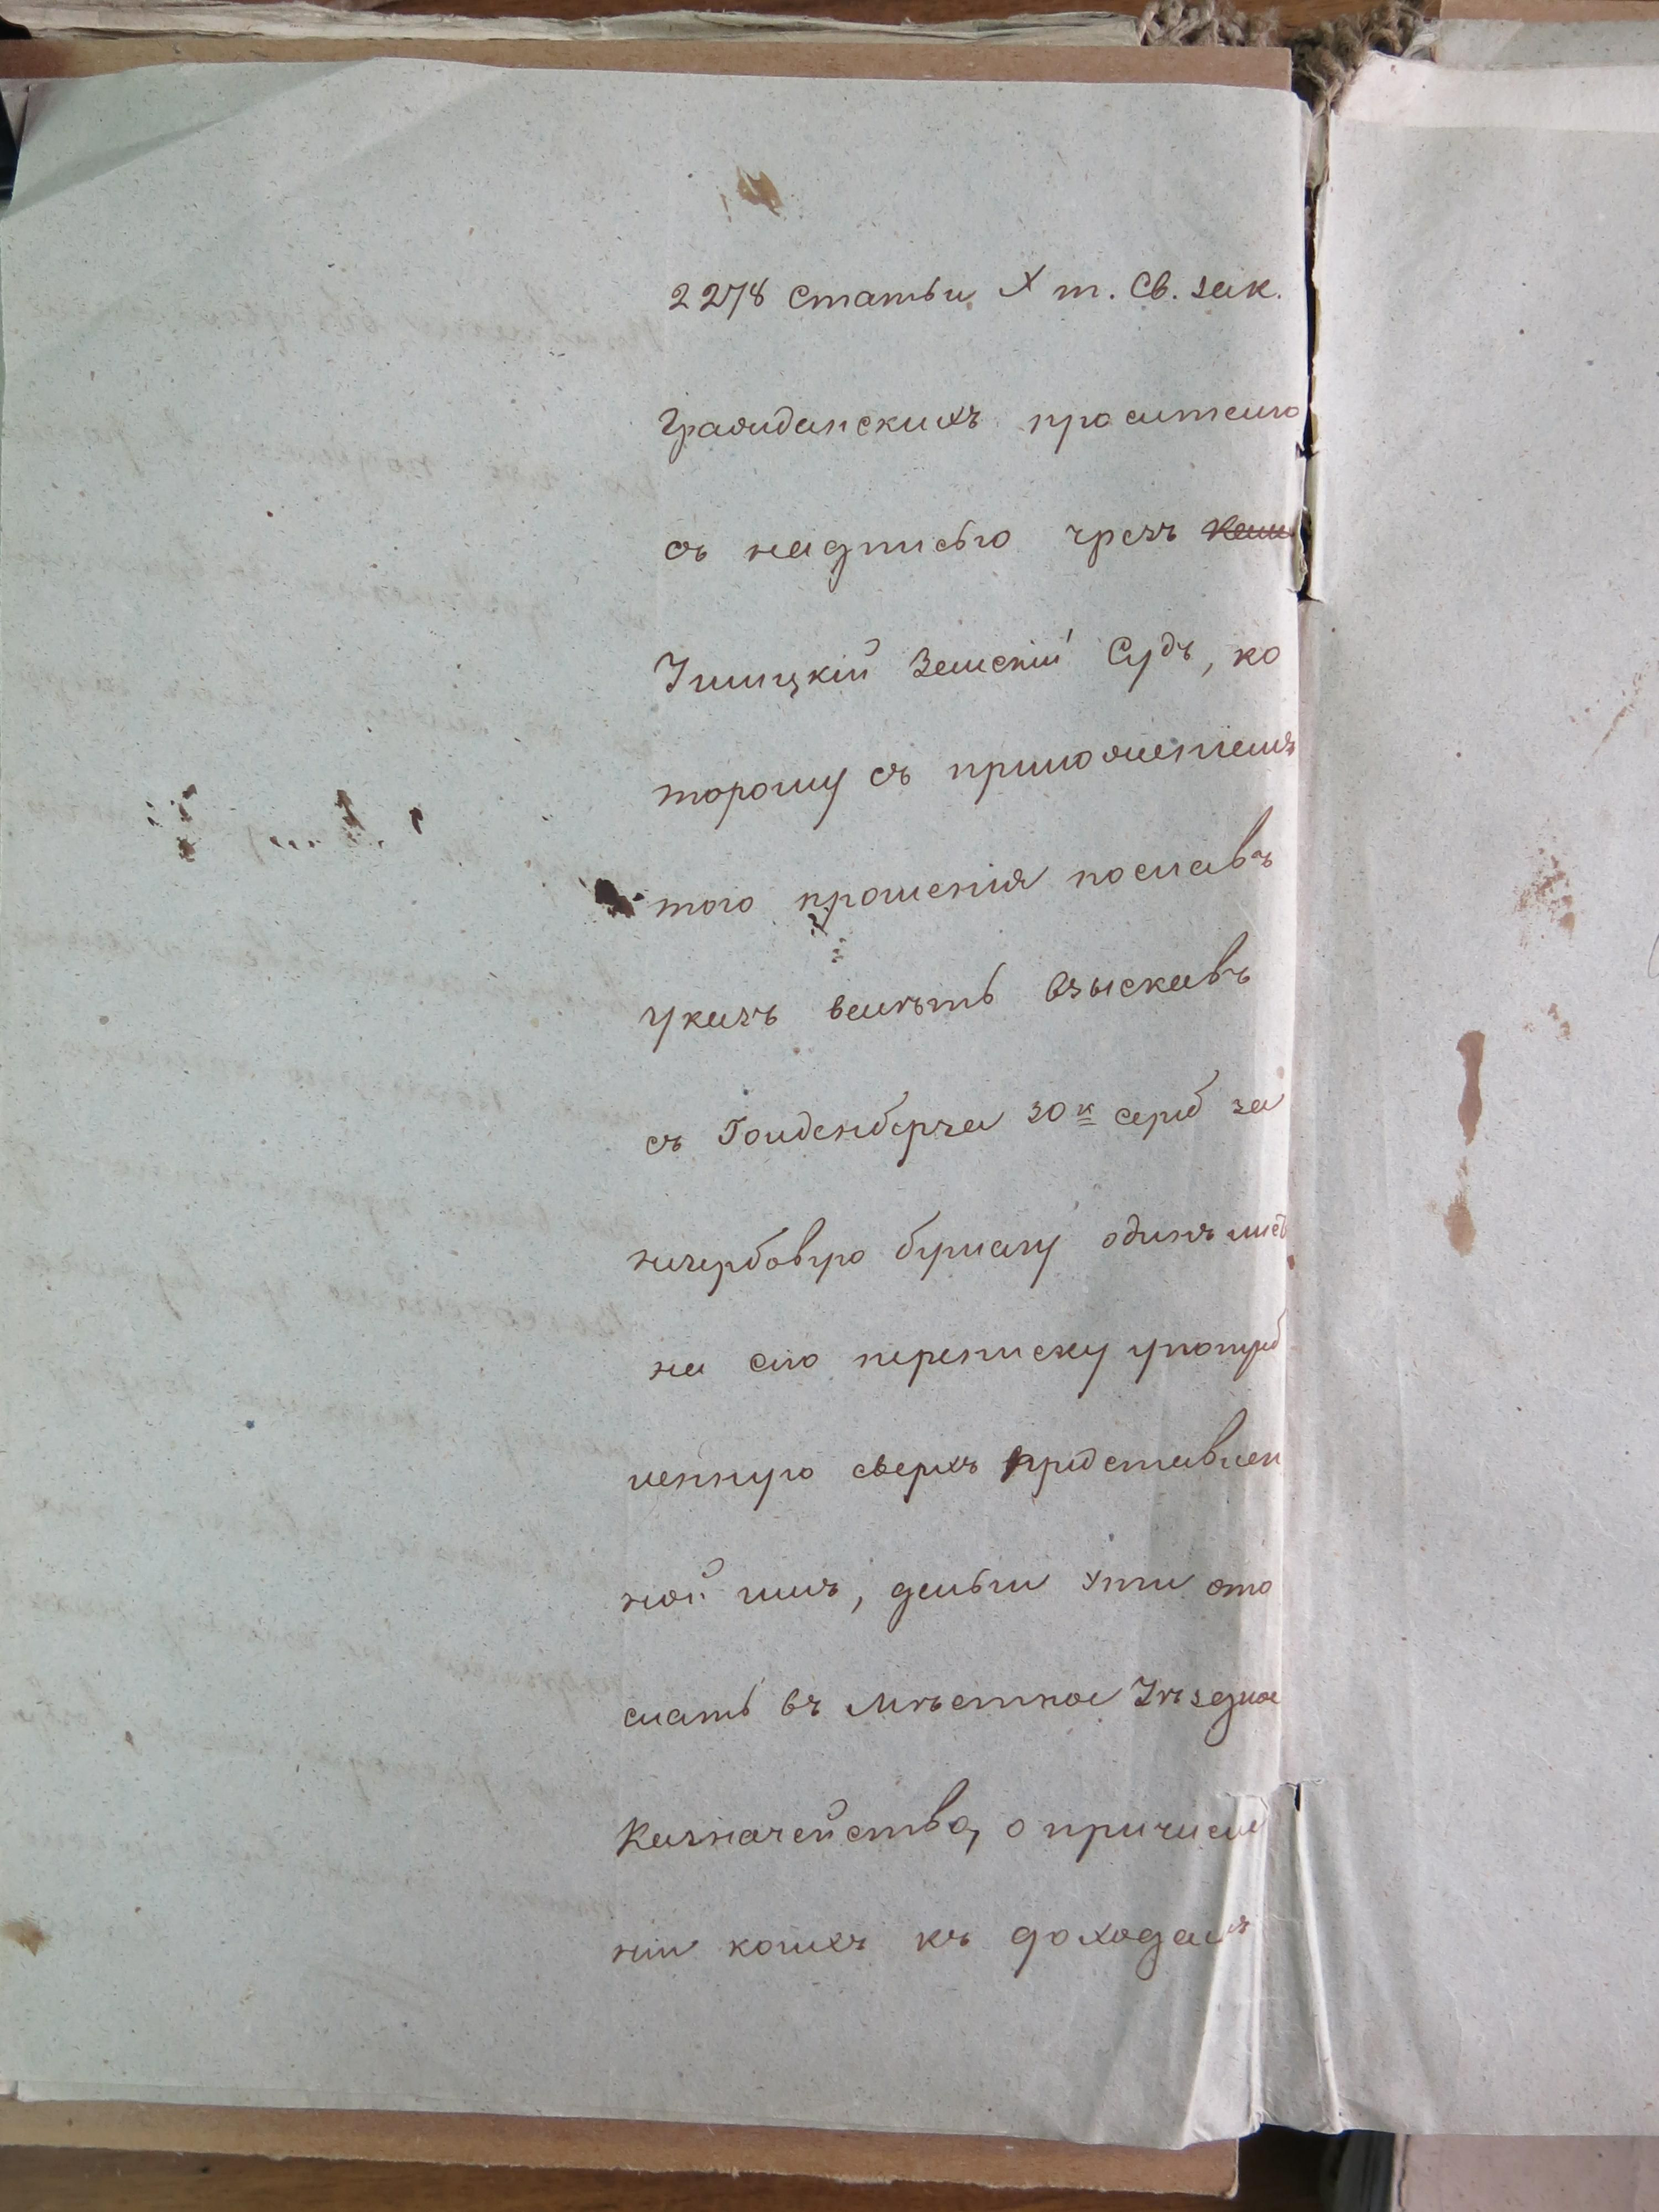 2278 статьи X т. Св. зак.
Гражданскихъ просителю
съ надписью чрезъ
Ушицкій Земскій Судъ, ко
торому съ приложеніемъ
того прошенія пославъ
указъ велѣть взыскавъ
съ Гольденберга 30 к сереб за
негербовую бумагу одинъ лист
на сію переписку употреб
ленную сверхъ представлен
ной имъ, деньги эти ото
слать въ мѣстное Уѣздное
Казначейство, о причисле
ніи коихъ къ доходамъ